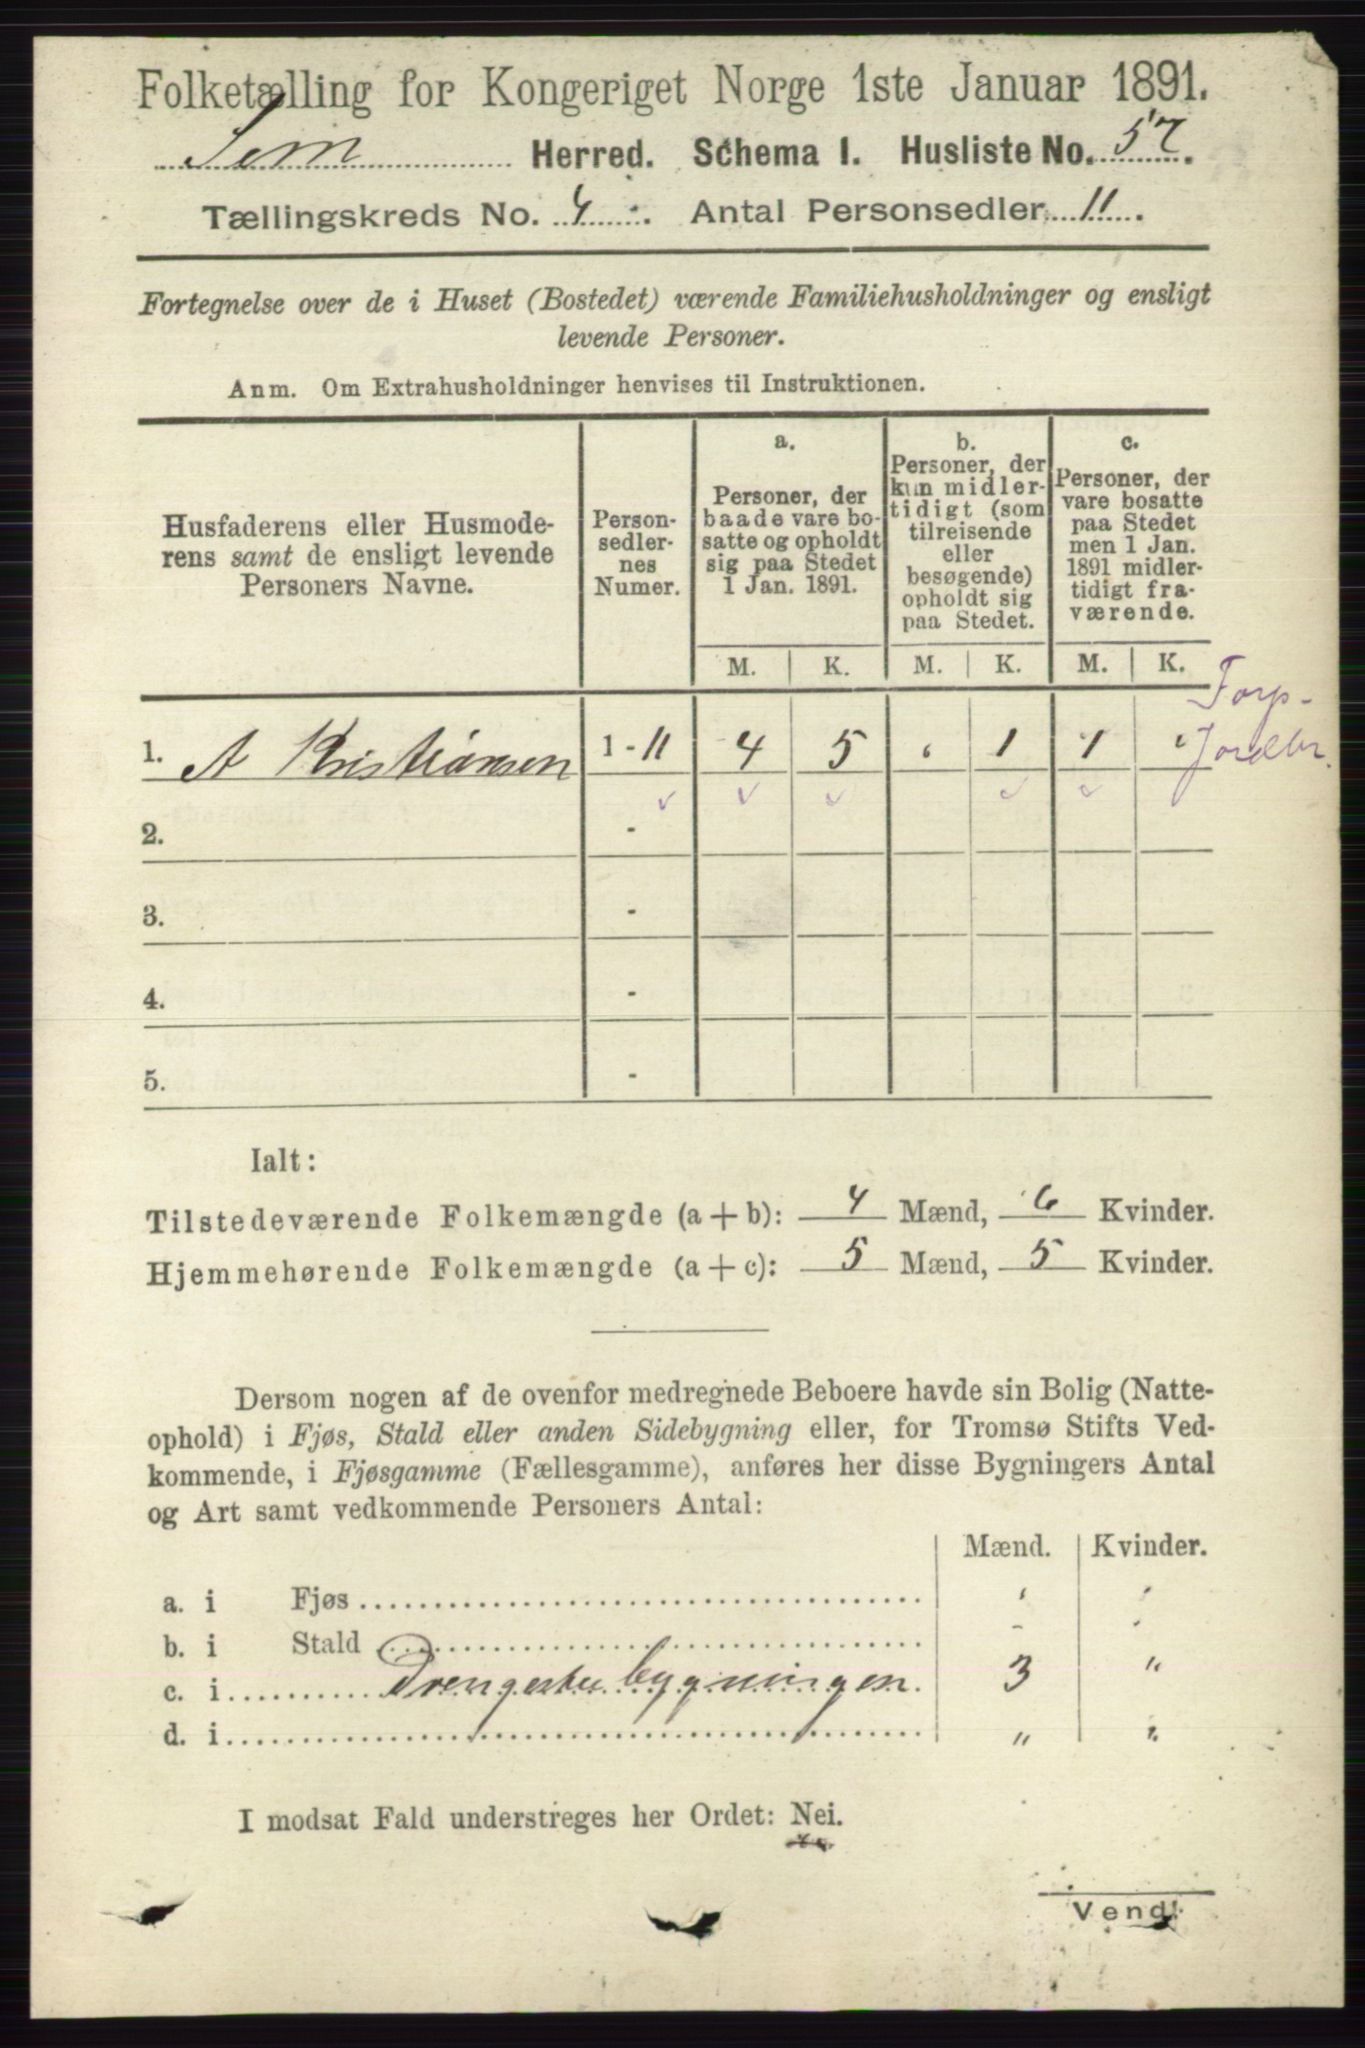 Folketælling for Kongeriget Norge 1ste Januar 1891.
Sem Herred. Schema I. Husliste No. 57.
Tællingskreds No. 4. Antal Personsedler 11.
Fortegnelse over de i Huset (Bostedet) værende Familiehusholdninger og ensligt
levende Personer.
Anm. Om Extrahusholdninger henvises til Instruktionen.
Husfaderens eller Husmode-
rens samt de ensligt levende
Personers Navne.
Person-
sedler-
nes
Numer.
a.
Personer, der
baade vare bo-
satte og opholdt
sig paa Stedet
1 Jan. 1891.
b.
Personer, der
kun midler-
tidigt (som
tilreisende
eller
besøgende)
opholdt sig
paa Stedet.
c.
Personer, der
vare bosatte
paa Stedet
men 1 Jan.
1891 midler-
tidigt fra-
værende.
M. K. M. K. M. K.
Torp-
Jordbr.
1. A Kristiansen 1 - 11 4 5 " 1 1 "
2. -
3. -
4. -
5. -
Ialt:
Tilstedeværende Folkemængde (a + b): 4 Mænd, 6 Kvinder.
Hjemmehørende Folkemængde (a + c): 5 Mænd, 5 Kvinder.
Dersom nogen af de ovenfor medregnede Beboere havde sin Bolig (Natte-
ophold) i Fjøs, Stald eller anden Sidebygning eller, for Tromsø Stifts Ved-
kommende, i Fjøsgamme (Fællesgamme), anføres her disse Bygningers Antal
og Art samt vedkommende Personers Antal:
Mænd. Kvinder.
a. i Fjøs " "
b. i Stald - "
c. i Drengestubygningen. 3 "
d. i " "
I modsat Fald understreges her Ordet: Nei.
Vend!